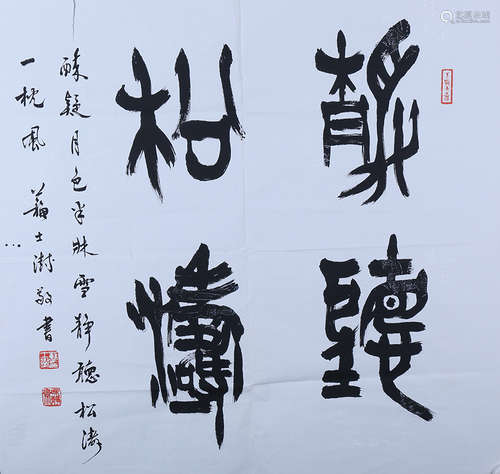 静聽
松濤
醉疑月色半牀雪静聽松濤
一枕風 蘇士澍敬書